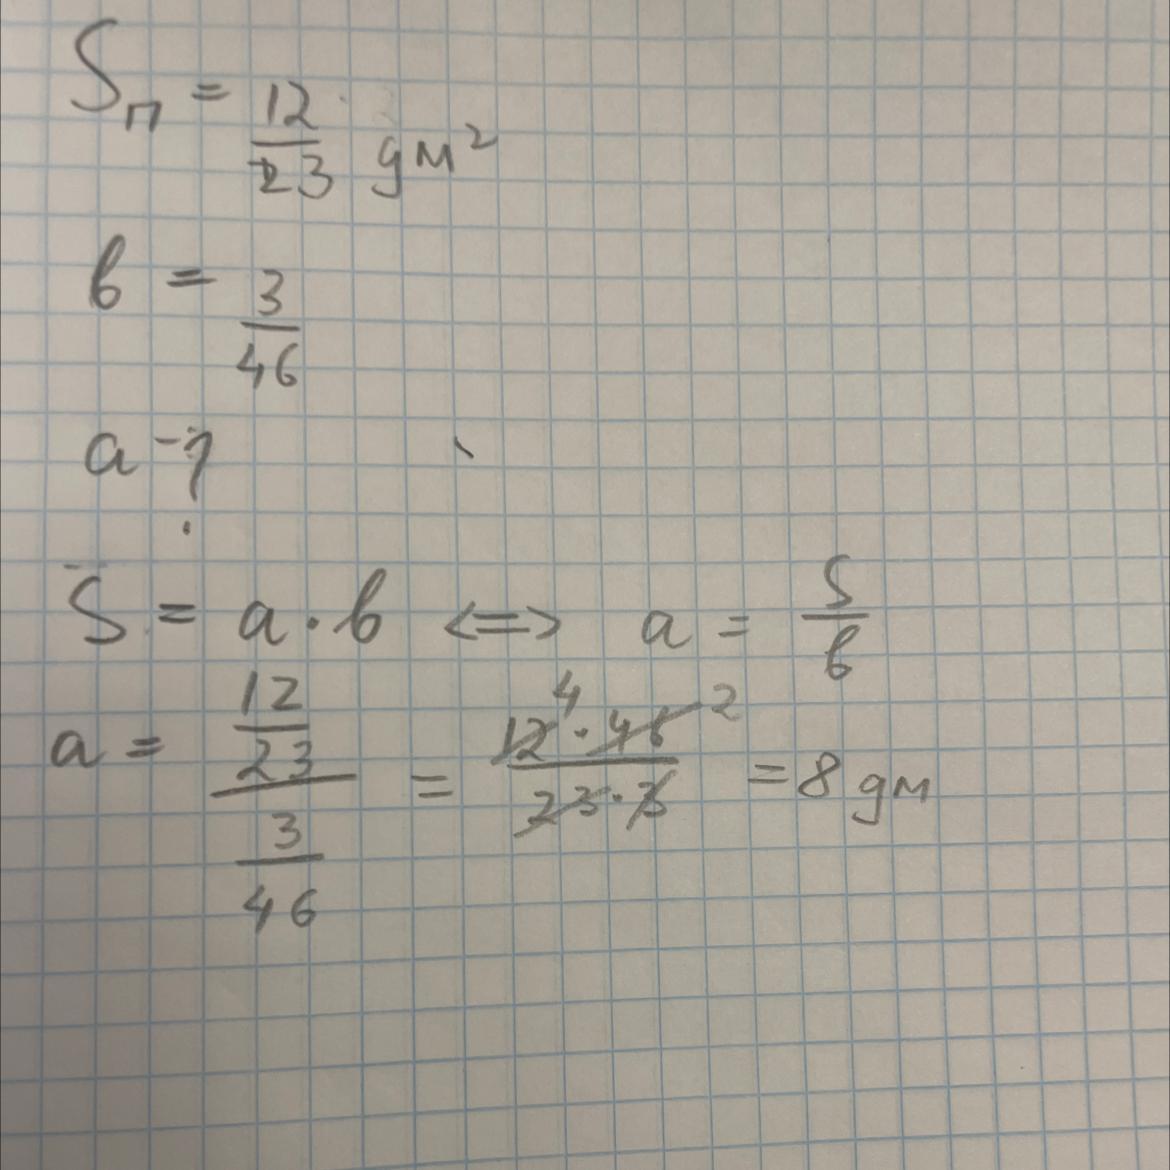 Sп = 12/23 дм²
b = 3/46
a - ?
S = a · b <=> a = S/b
a = (12/23)/(3/46) = (12 4 · 46 2)/(23 · 3) = 8 дм